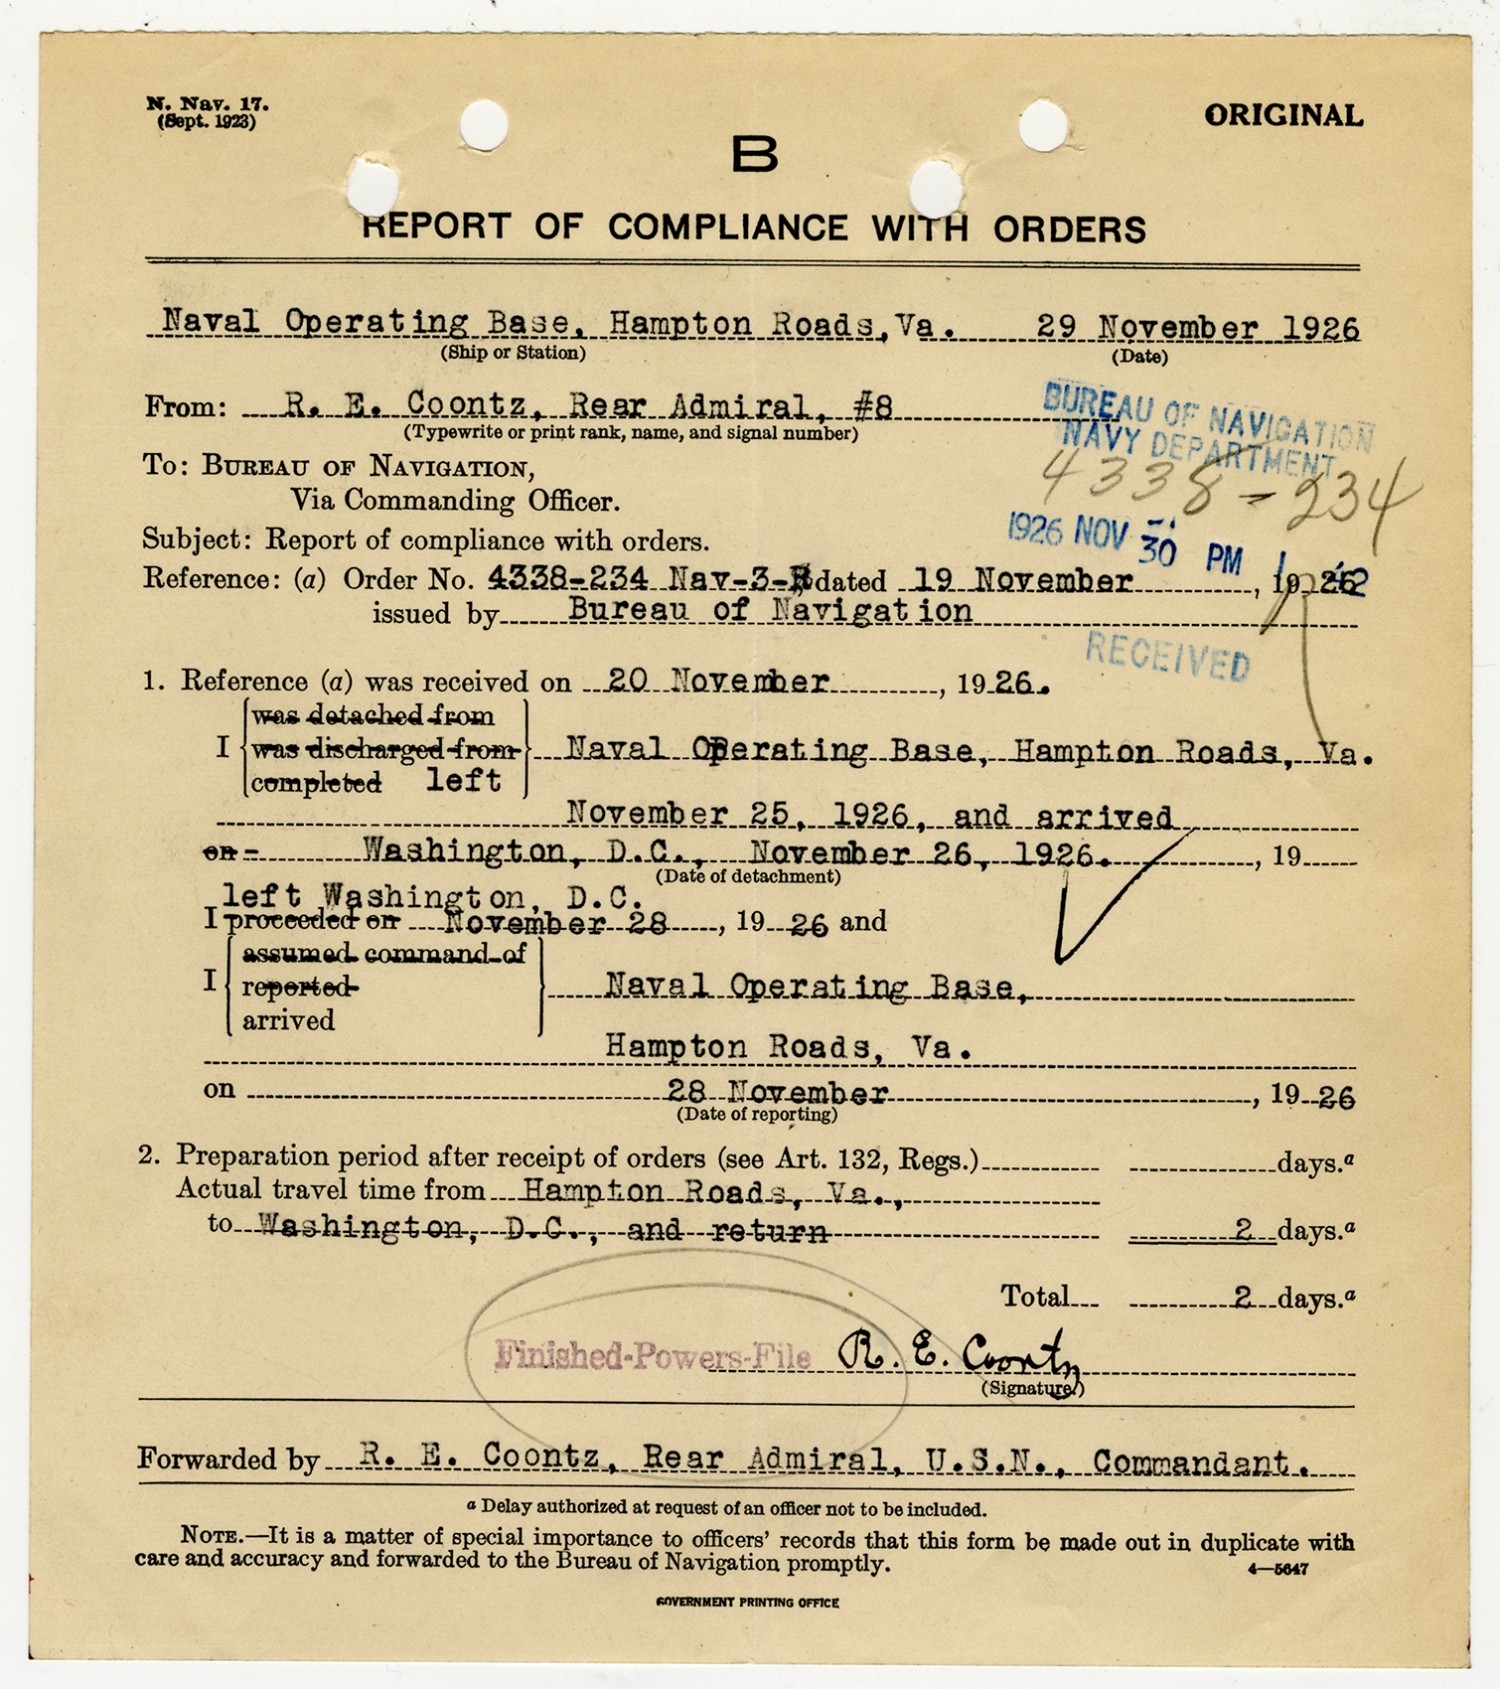 N. Nav. 17.
(Sept. 1923)
ORIGINAL
B
REPORT OF COMPLIANCE WITH ORDERS
Naval Operating Base, Hampton Roads, Va. 29 November 1926
(Ship or Station) (Date)
From: R. E. Coontz, Rear Admiral, #8
(Typewrite or print rank, name, and signal number)
BUREAU OF NAVIGATION
NAVY DEPARTMENT
To: BUREAU OF NAVIGATION,
4338-234
Via Commanding Officer.
1926 NOV 30 PM
Subject: Report of compliance with orders.
Reference: (a) Order No. 4338-234 Nav-3- dated 19 November, 1926
issued by Bureau of Navigation
RECEIVED
1. Reference (a) was received on 20 November, 1926.
was detached from
I was discharged from Naval Operating Base, Hampton Roads, Va.
completed left
November 25, 1926, and arrived
on - Washington, D.C., November 26, 1926. , 19
(Date of detachment)
left Washington, D.C.
I proceeded on November 28, 1926 and
assumed command of
I reported Naval Operating Base,
arrived
Hampton Roads, Va.
on 28 November, 1926
(Date of reporting)
2. Preparation period after receipt of orders (see Art. 132, Regs.) days.a
Actual travel time from Hampton Roads, Va.,
to Washington, D.C., and return 2 days.a
Total 2 days.a
Finished-Powers-File R. E. Coontz
(Signature)
Forwarded by R. E. Coontz, Rear Admiral, U.S.N., Commandant.
a Delay authorized at request of an officer not to be included.
NOTE.—It is a matter of special importance to officers' records that this form be made out in duplicate with
care and accuracy and forwarded to the Bureau of Navigation promptly.
4—5647
GOVERNMENT PRINTING OFFICE